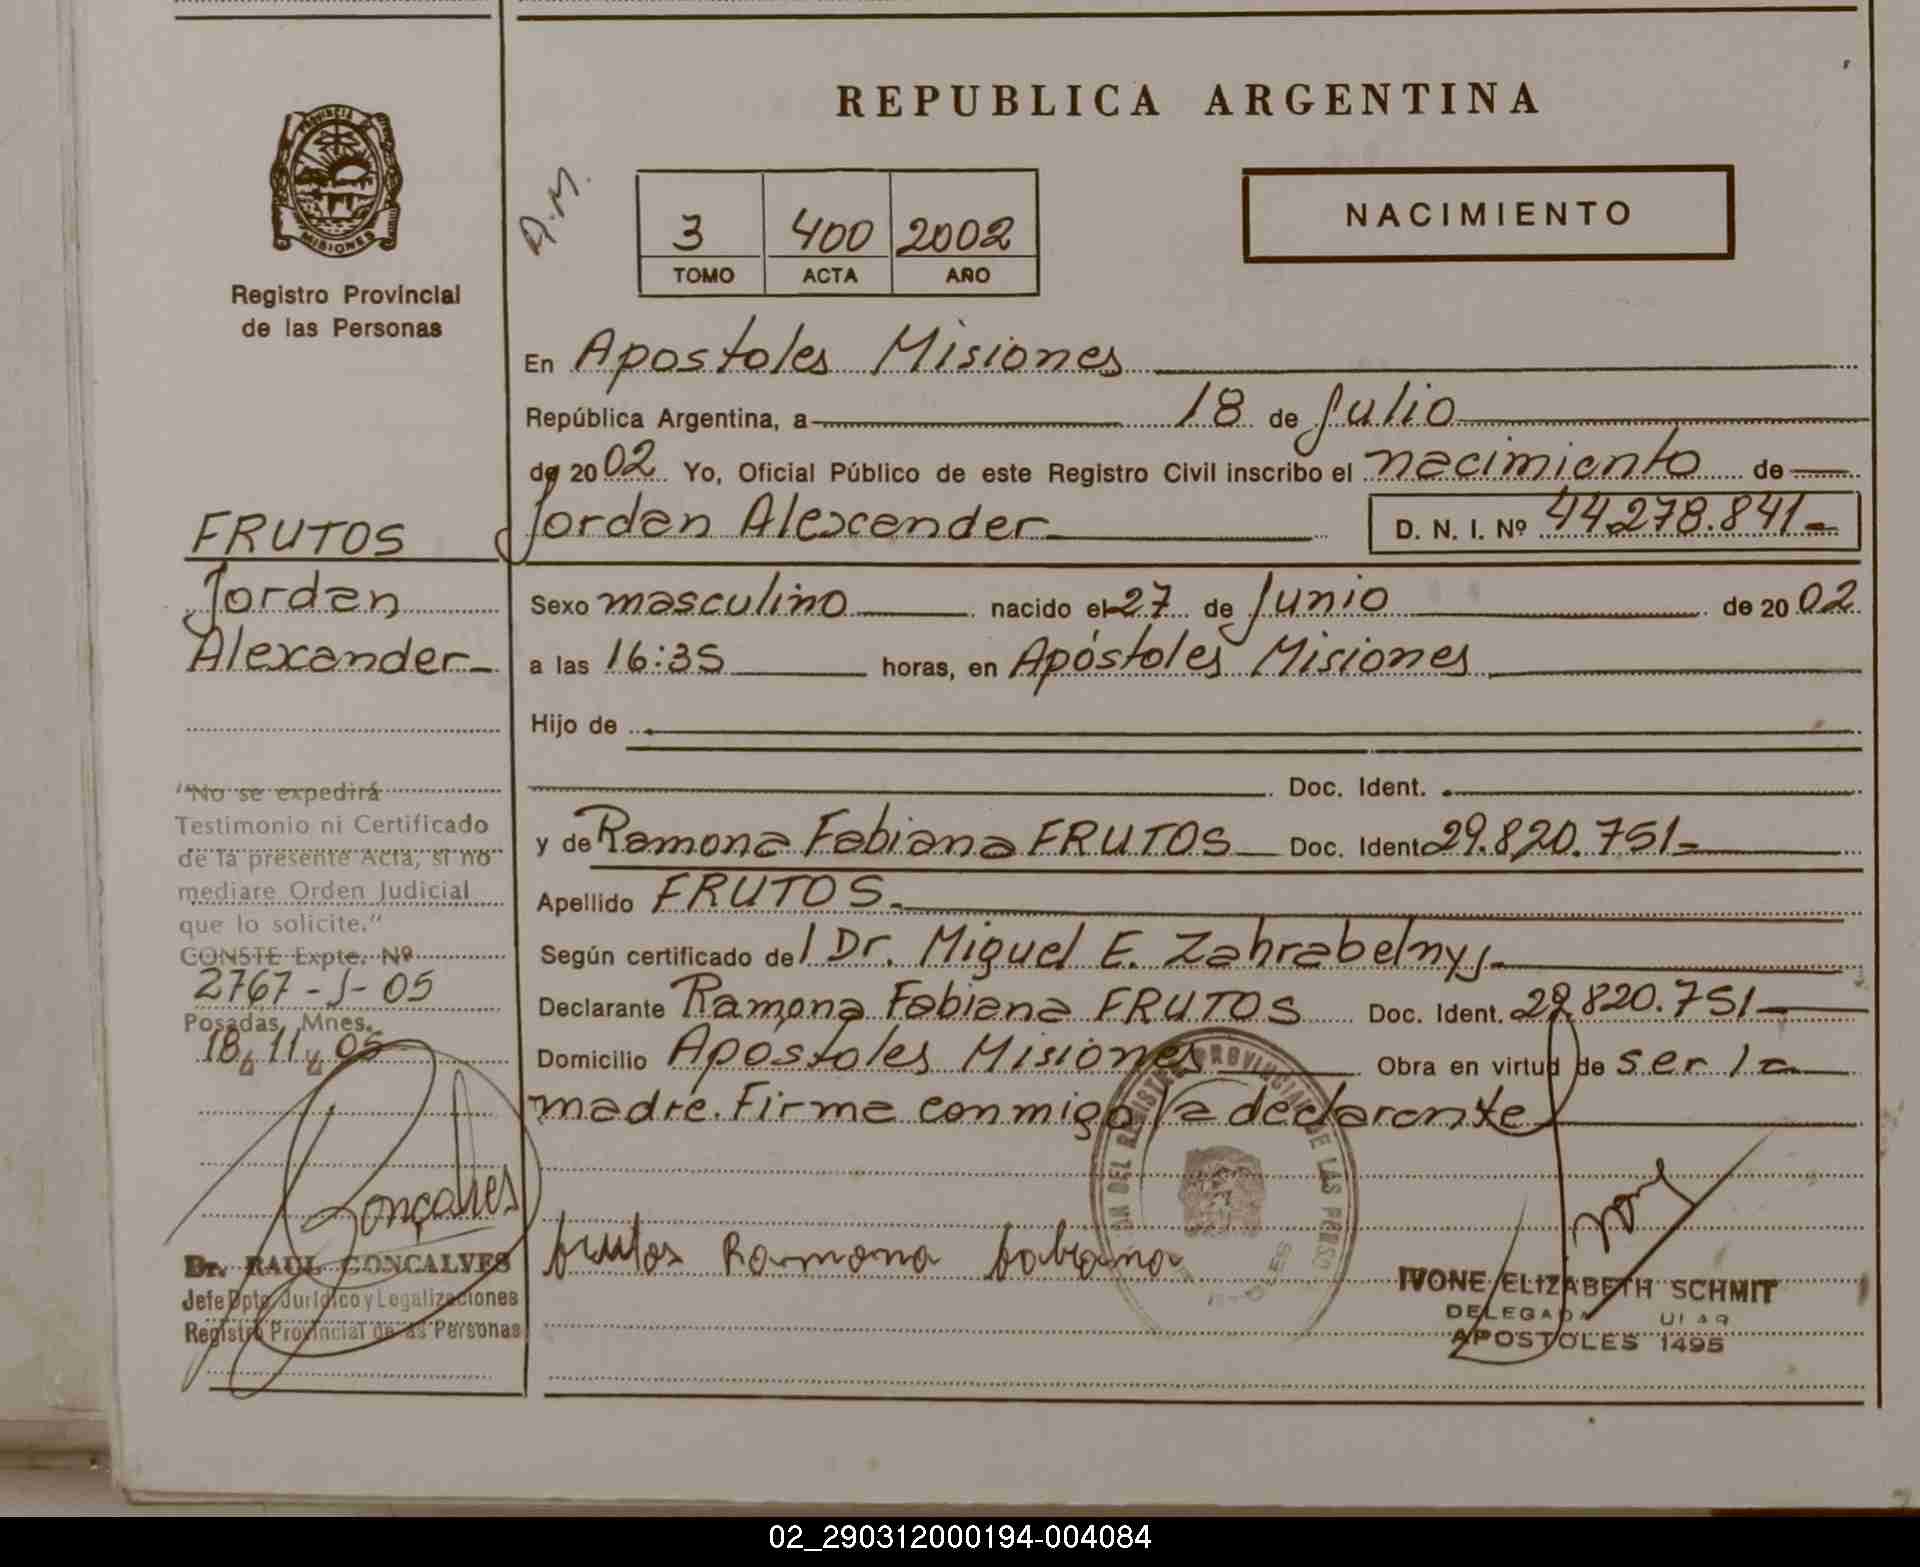 REPUBLICA ARGENTINA
PROVINCIA DE
MISIONES
Registro Provincial
de las Personas
A.M.
3 400 2002
TOMO ACTA AÑO
NACIMIENTO
En Apostoles Misiones
República Argentina, a 18 de Julio
de 2002 Yo, Oficial Público de este Registro Civil inscribo el nacimiento de
Jordan Alexander D. N. I. Nº 44.278.841-
Sexo masculino nacido el 27 de Junio de 2002
a las 16:35 horas, en Apóstoles Misiones
Hijo de
Doc. Ident.
y de Ramona Fabiana FRUTOS Doc. Ident 29.820.751-
Apellido FRUTOS.
Según certificado del Dr. Miguel E. Zahrabelny,-
Declarante Ramona Fabiana FRUTOS Doc. Ident. 29.820.751-
Domicilio Apóstoles Misiones Obra en virtud de ser la
madre. Firma conmigo la declarante
FRUTOS
Jordan
Alexander-
"No se expedirá
Testimonio ni Certificado
de la presente Acta, si no
mediare Orden Judicial
que lo solicite."
CONSTE Expte. Nº
2767-S-05
Posadas, Mnes.
18 11 05
Gonçalves
Dr. RAUL GONCALVES
Jefe Dpto. Jurídico y Legalizaciones
Registro Provincial de las Personas
frutos Ramona fabiana
DEL REGISTRO PROVINCIAL DE LAS PERSO
IVONE ELIZABETH SCHMIT
DELEGADA
APOSTOLES 1495
02_290312000194-004084